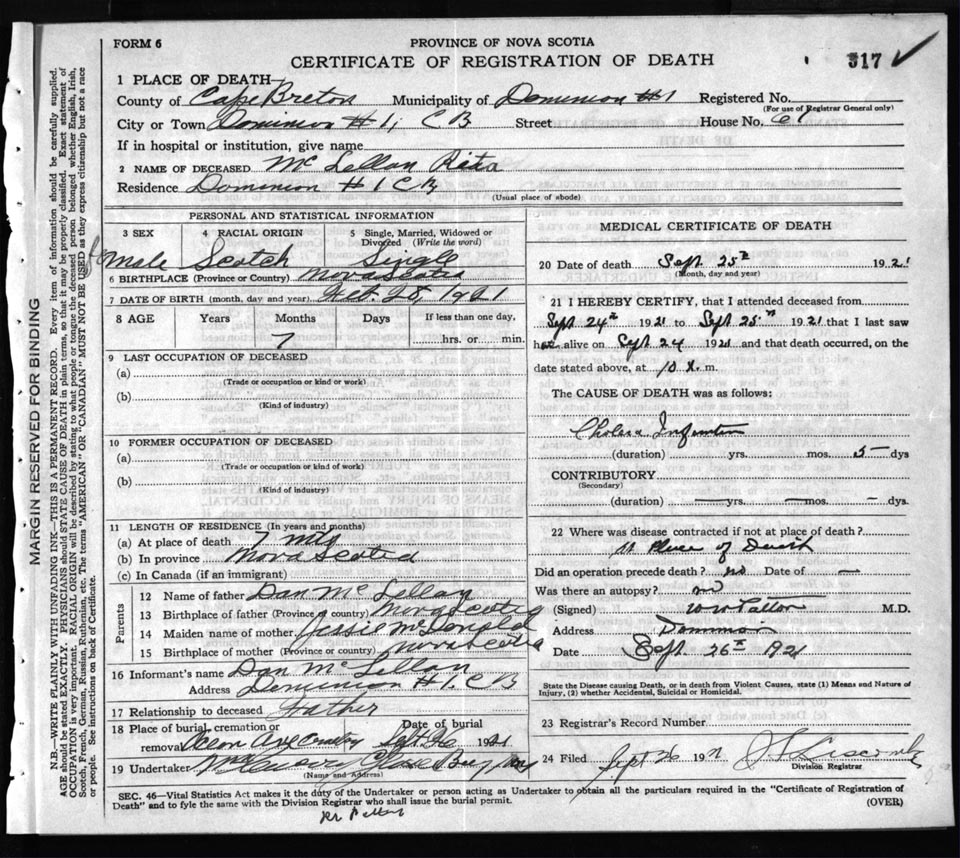 FORM 6
PROVINCE OF NOVA SCOTIA
CERTIFICATE OF REGISTRATION OF DEATH
317
1 PLACE OF DEATH
County of Cape Breton Municipality of Dominion #1 Registered No.
(For use of Registrar General only)
City or Town Dominion #1, CB Street House No. 61
If in hospital or institution, give name
2 NAME OF DECEASED Mc Lellan Rita
Residence Dominion # 1 C B
(Usual place of abode)
PERSONAL AND STATISTICAL INFORMATION
3 SEX 4 RACIAL ORIGIN 5 Single, Married, Widowed or Divorced (Write the word)
feMale Scotch Single
6 BIRTHPLACE (Province or Country) Nova Scotia
7 DATE OF BIRTH (month, day and year) Feb. 28, 1921
8 AGE Years Months Days If less than one day,
7 hrs. or min.
9 LAST OCCUPATION OF DECEASED
(a)
(Trade or occupation or kind or work)
(b)
(Kind of industry)
10 FORMER OCCUPATION OF DECEASED
(a)
(Trade or occupation or kind or work)
(b)
(Kind of industry)
11 LENGTH OF RESIDENCE (In years and months)
(a) At place of death 7 mts
(b) In province Nova Scotia
(c) In Canada (if an immigrant)
Parents
12 Name of father Dan Mc Lellan
13 Birthplace of father (Province or country) Nova Scotia
14 Maiden name of mother Jessie McDonald
15 Birthplace of mother (Province or country) Nova Scotia
16 Informant's name Dan Mc Lellan
Address Dominion # 1. C B
17 Relationship to deceased Father
18 Place of burial, cremation or removal Date of burial Sept 26 1921
19 Undertaker Glace Bay
(Name and Address)
MEDICAL CERTIFICATE OF DEATH
20 Date of death Sept. 25th 1921
(Month, day and year)
21 I HEREBY CERTIFY, that I attended deceased from
Sept 24th 1921 to Sept 25th 1921 that I last saw
her alive on Sept 24 1921 and that death occurred, on the
date stated above, at 10 m.
The CAUSE OF DEATH was as follows:
Cholera Infantum
(duration) yrs. mos. 5 dys
CONTRIBUTORY
(Secondary)
(duration) — yrs. — mos. — dys.
22 Where was disease contracted if not at place of death?
at Place of Death
Did an operation precede death? no Date of —
Was there an autopsy? no
(Signed) M.D.
Address Dominion
Date Sept. 26th 1921
State the Disease causing Death, or in death from Violent Causes, state (1) Means and Nature of Injury, (2) whether Accidental, Suicidal or Homicidal.
23 Registrar's Record Number
24 Filed Sept 26 19
Division Registrar
SEC. 46—Vital Statistics Act makes it the duty of the Undertaker or person acting as Undertaker to obtain all the particulars required in the "Certificate of Registration of
Death" and to fyle the same with the Division Registrar who shall issue the burial permit.
(OVER)
MARGIN RESERVED FOR BINDING
N.B.—WRITE PLAINLY WITH UNFADING INK—THIS IS A PERMANENT RECORD. Every item of information should be carefully supplied.
AGE should be stated EXACTLY. PHYSICIANS should STATE CAUSE OF DEATH in plain terms, so that it may be properly classified. Exact statement of
OCCUPATION is very important. RACIAL ORIGIN will be described by stating to what people or tongue the deceased person belonged whether English, Irish,
Scotch, French, German, Russian, Ruthenian, etc. The terms "AMERICAN" OR "CANADIAN" MUST NOT BE USED as they express citizenship but not a race
or people. See instructions on back of Certificate.